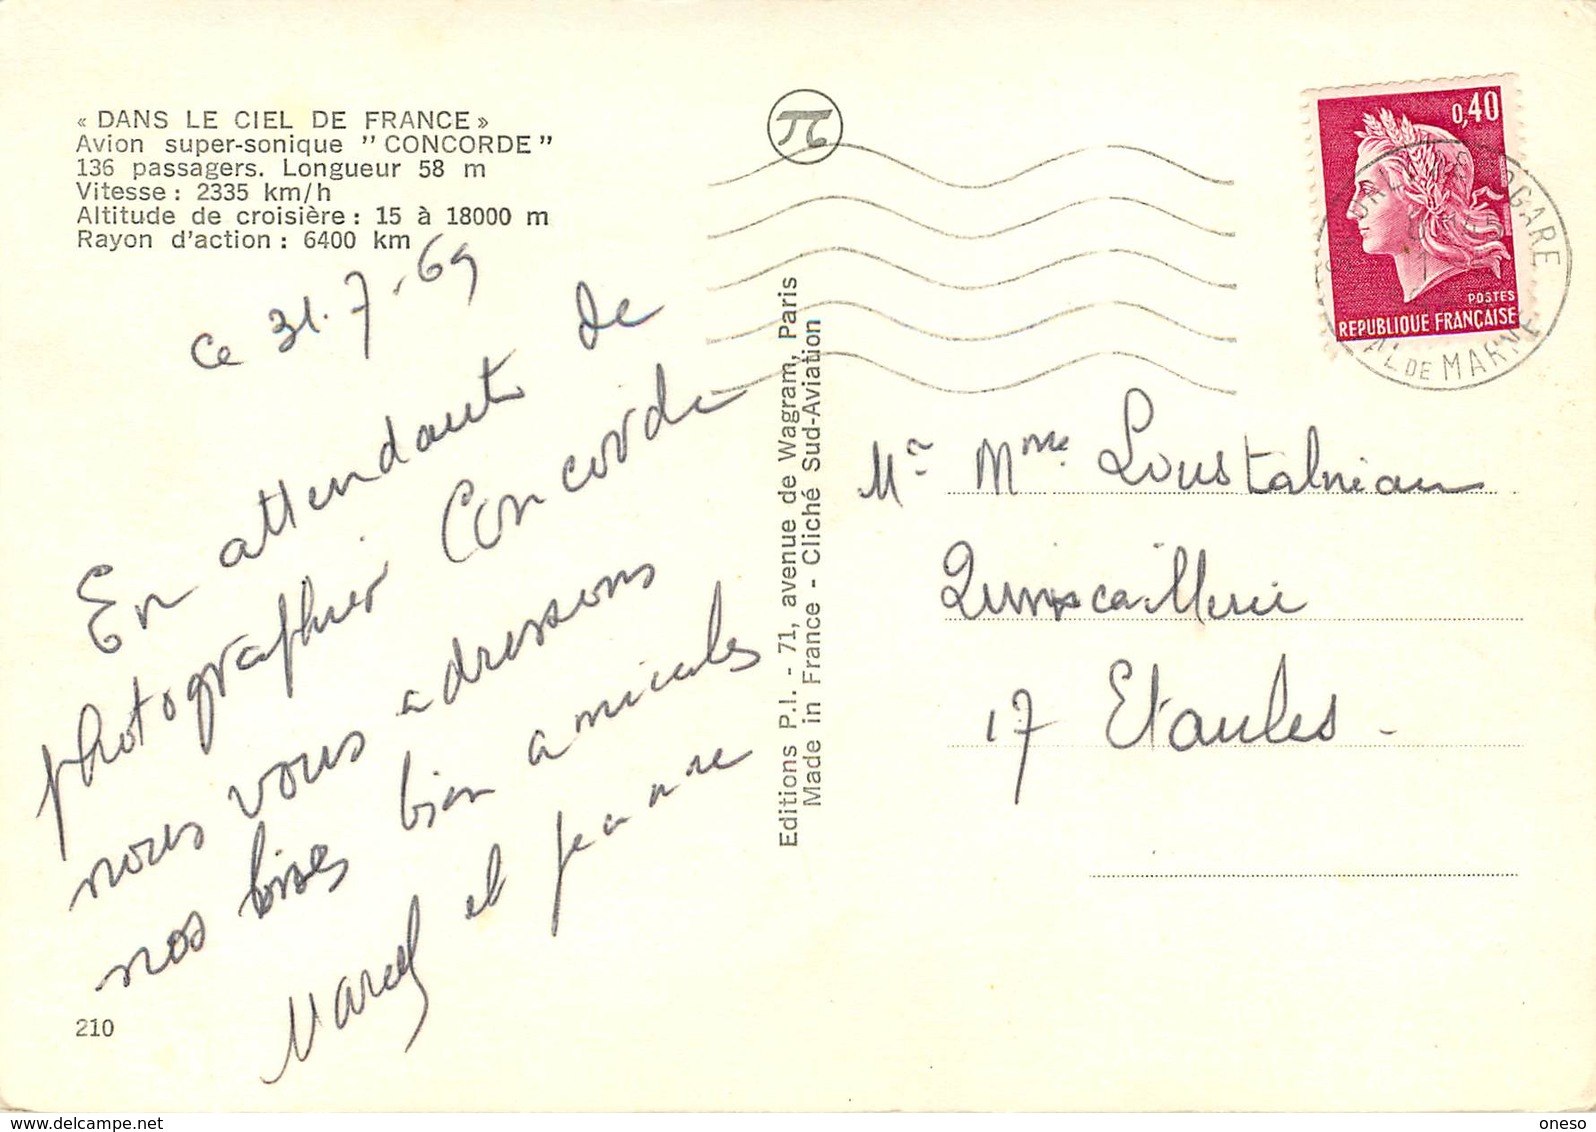 « DANS LE CIEL DE FRANCE »
Avion super-sonique "CONCORDE"
136 passagers. Longueur 58 m
Vitesse : 2335 km/h
Altitude de croisière : 15 à 18000 m
Rayon d'action : 6400 km
ce 31.7.69
En attendant de
photographier Concorde
nous vous adressons
nos bises bien amicales
Marcel et Jeanne
210
Editions P.I. - 71, avenue de Wagram, Paris
Made in France - Cliché Sud-Aviation
0,40
POSTES
REPUBLIQUE FRANÇAISE
ORLY AEROGARE
VAL DE MARNE
Mr Mme Loustalniau
Quincaillerie
17 Etaules -
www.delcampe.net
oneso